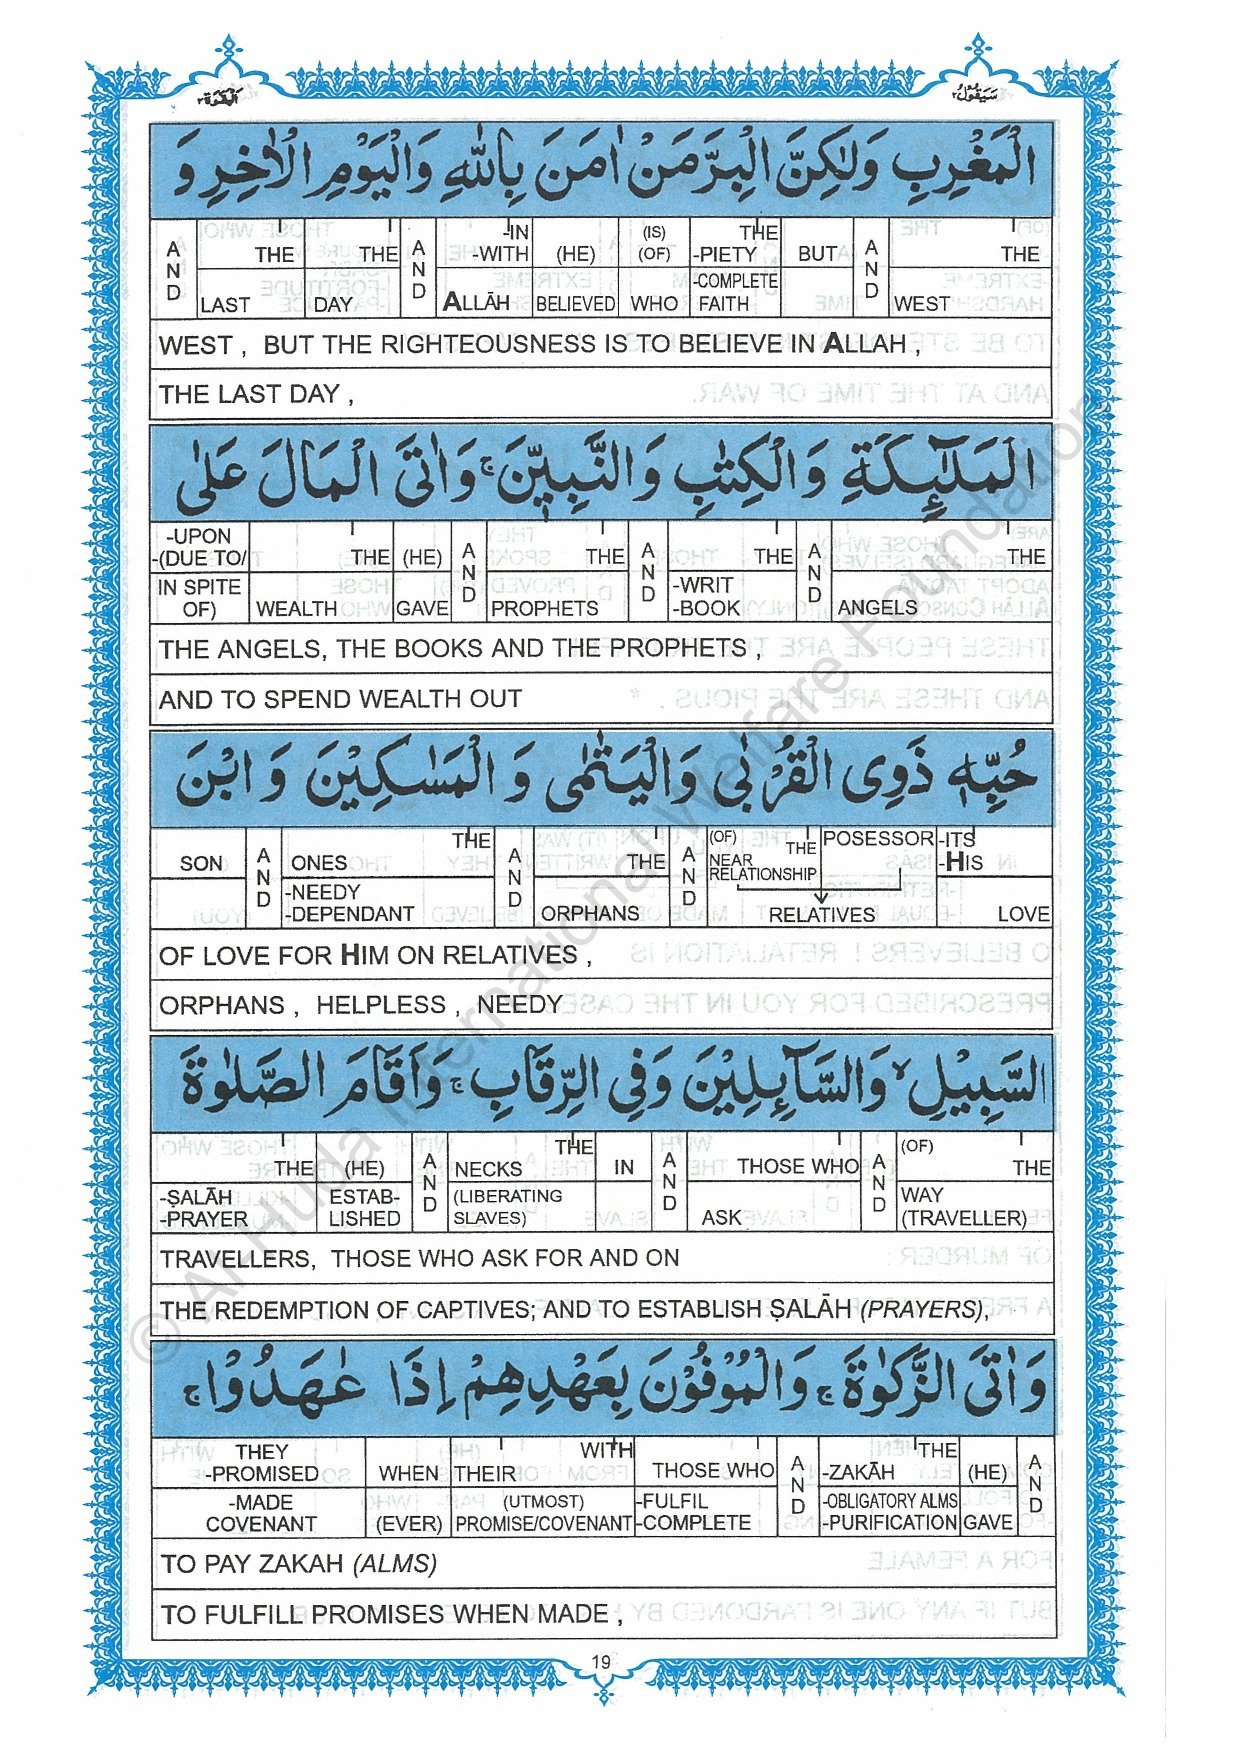 البقرة ٢
سيقول ٢
الْمَغْرِبِ وَلٰكِنَّ الْبِرَّ مَنْ اٰمَنَ بِاللّٰهِ وَالْيَوْمِ الْاٰخِرِ وَ
AND THE LAST THE DAY AND -IN -WITH ALLĀH (HE) BELIEVED (IS) (OF) WHO THE -PIETY -COMPLETE FAITH BUT AND THE WEST
WEST , BUT THE RIGHTEOUSNESS IS TO BELIEVE IN ALLAH ,
THE LAST DAY ,
الْمَلٰٓئِكَةِ وَالْكِتٰبِ وَالنَّبِيّٖنَ ۚ وَاٰتَى الْمَالَ عَلٰى
-UPON -(DUE TO/ IN SPITE OF) THE WEALTH (HE) GAVE AND THE PROPHETS AND THE -WRIT -BOOK AND THE ANGELS
THE ANGELS, THE BOOKS AND THE PROPHETS ,
AND TO SPEND WEALTH OUT
حُبِّهٖ ذَوِى الْقُرْبٰى وَالْيَتٰمٰى وَ الْمَسٰكِيْنَ وَ ابْنَ
SON AND THE ONES -NEEDY -DEPENDANT AND THE ORPHANS AND (OF) THE NEAR RELATIONSHIP POSESSOR RELATIVES -ITS -HIS LOVE
OF LOVE FOR HIM ON RELATIVES ,
ORPHANS , HELPLESS , NEEDY
السَّبِيْلِ ۙ وَالسَّآئِلِيْنَ وَفِى الرِّقَابِ ۚ وَاَقَامَ الصَّلٰوةَ
THE -ṢALĀH -PRAYER (HE) ESTAB- LISHED AND THE NECKS (LIBERATING SLAVES) IN AND THOSE WHO ASK AND (OF) THE WAY (TRAVELLER)
TRAVELLERS, THOSE WHO ASK FOR AND ON
THE REDEMPTION OF CAPTIVES; AND TO ESTABLISH ṢALĀH (PRAYERS),
وَاٰتَى الزَّكٰوةَ ۚ وَالْمُوْفُوْنَ بِعَهْدِهِمْ اِذَا عٰهَدُوْا ۚ
THEY -PROMISED -MADE COVENANT WHEN (EVER) WITH THEIR (UTMOST) PROMISE/COVENANT THOSE WHO -FULFIL -COMPLETE AND THE -ZAKĀH -OBLIGATORY ALMS -PURIFICATION (HE) GAVE AND
TO PAY ZAKAH (ALMS)
TO FULFILL PROMISES WHEN MADE ,
19
© Al-Huda International Welfare Foundation